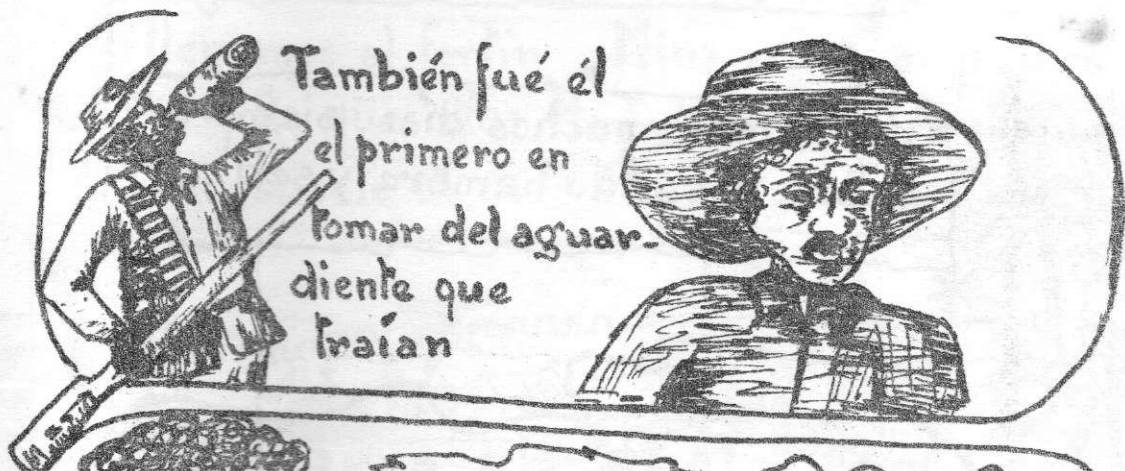 También fué él
el primero en
tomar del aguar-
diente que
traían